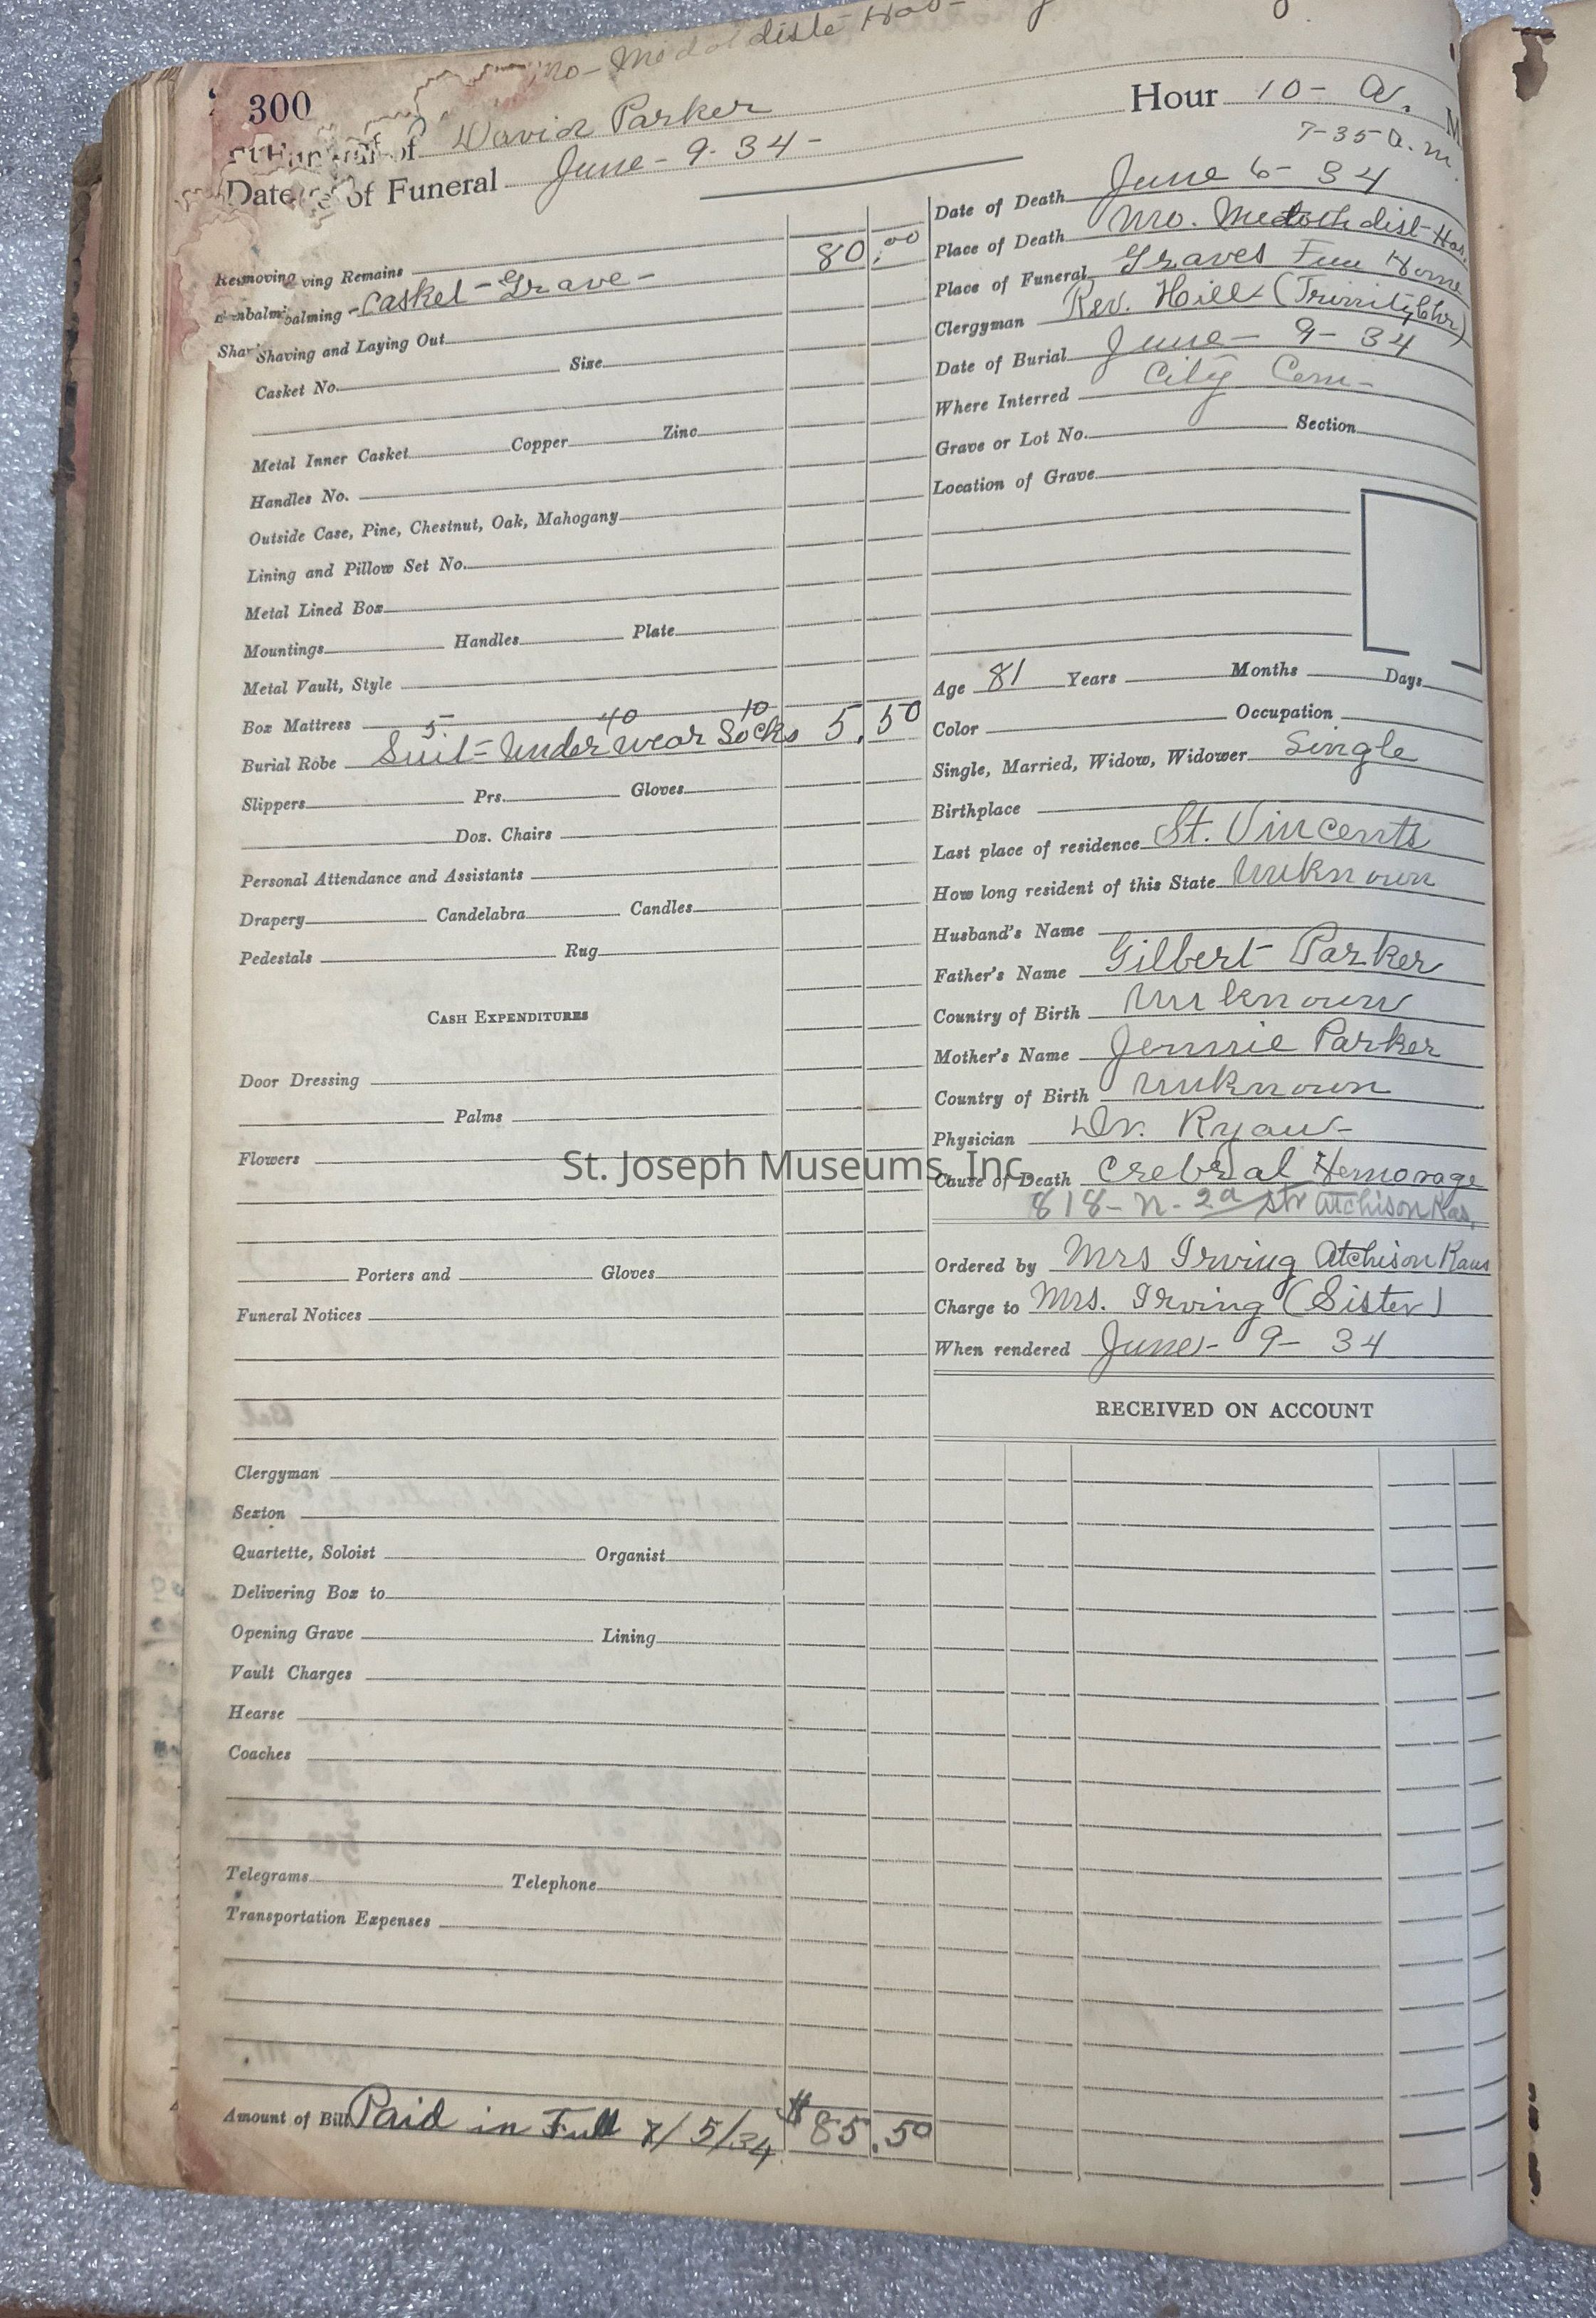 300
David Parker
Hour 10- A. M
7-35 a.m.
Date of Funeral June-9-34-
Date of Death June 6-34
Place of Death Mo. Metothdist-Hos.
Place of Funeral Graves Fun Home
Clergyman Rev. Hill (Trinity Chr)
Date of Burial June-9-34
Where Interred City Cem-
Grave or Lot No. Section
Location of Grave
Removing Remains 80.00
balming -Casket-Grave-
Shaving and Laying Out
Casket No. Size
Metal Inner Casket Copper Zinc
Handles No.
Outside Case, Pine, Chestnut, Oak, Mahogany
Lining and Pillow Set No.
Metal Lined Box
Mountings Handles Plate
Metal Vault, Style
Box Mattress
5- 40 10
Burial Robe Suit-Underwear Socks 5.50
Slippers Prs. Gloves
Doz. Chairs
Personal Attendance and Assistants
Drapery Candelabra Candles
Pedestals Rug
CASH EXPENDITURES
Door Dressing
Palms
Flowers
Porters and Gloves
Funeral Notices
Clergyman
Sexton
Quartette, Soloist Organist
Delivering Box to
Opening Grave Lining
Vault Charges
Hearse
Coaches
Telegrams Telephone
Transportation Expenses
Amount of Bill Paid in Full 7/5/34 $85.50
Age 81 Years Months Days
Color Occupation
Single, Married, Widow, Widower Single
Birthplace
Last place of residence St. Vincents
How long resident of this State Unknown
Husband's Name
Father's Name Gilbert Parker
Country of Birth Unknown
Mother's Name Jennie Parker
Country of Birth Unknown
Physician Dr. Ryan-
Cause of Death Crebral Hemorage
818-N-2d str Atchison Kas,
Ordered by Mrs Irving Atchison Kans
Charge to Mrs. Irving (Sister)
When rendered June-9-34
RECEIVED ON ACCOUNT
St. Joseph Museums, Inc.